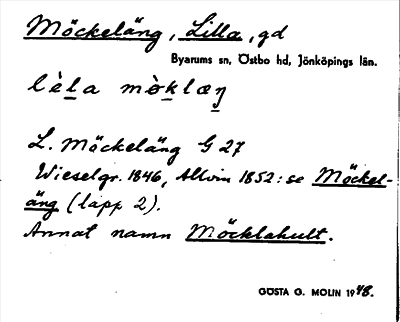 Möckeläng, Lilla, gd
Byarums sn, Östbo hd, Jönköpings län.
lèla mòklæŋ
L. Möckeläng G 27
Wieselgr. 1846, Allvin 1852: se Möckel-
äng (lapp 2).
Annat namn Möcklahult.
GÖSTA G. MOLIN 1948.